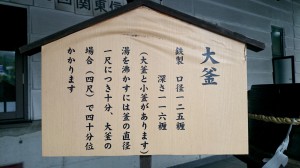 大釜
鉄製　口径一二五糎
深さ一一六糎
（大釜と小釜があります）
湯を沸かすには釜の直径
一尺につき十分、大釜の
場合（四尺）で四十分位
かかります